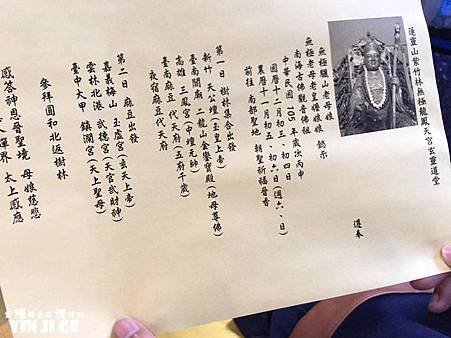 蓬靈山紫竹林無極龍鳳天宮玄靈道堂
遵奉
無極驪山老母娘娘 懿示
無極老母老皇娘娘
南海古佛觀世音佛祖
中華民國105年歲次丙申
國曆十二月初三、初四日
農曆十一月初五、初六日(週六、日)
前往 南部聖地 朝聖祈福晉香
第一日 樹林集合出發
新竹 天公壇(玉皇上帝)
臺南關廟 二龍山金鑾寶殿(地母尊佛)
高雄 三鳳宮(中壇元帥)
臺南麻豆 代天府(五府千歲)
夜宿麻豆 代天府
第二日 麻豆出發
嘉義梅山 玉虛宮(玄天上帝)
雲林北港 武德宮(天官武財神)
臺中大甲 鎮瀾宮(天上聖母)
參拜圓和 北返樹林
感答神恩晉聖境 母娘慈悲
太上感應
YINJIGE